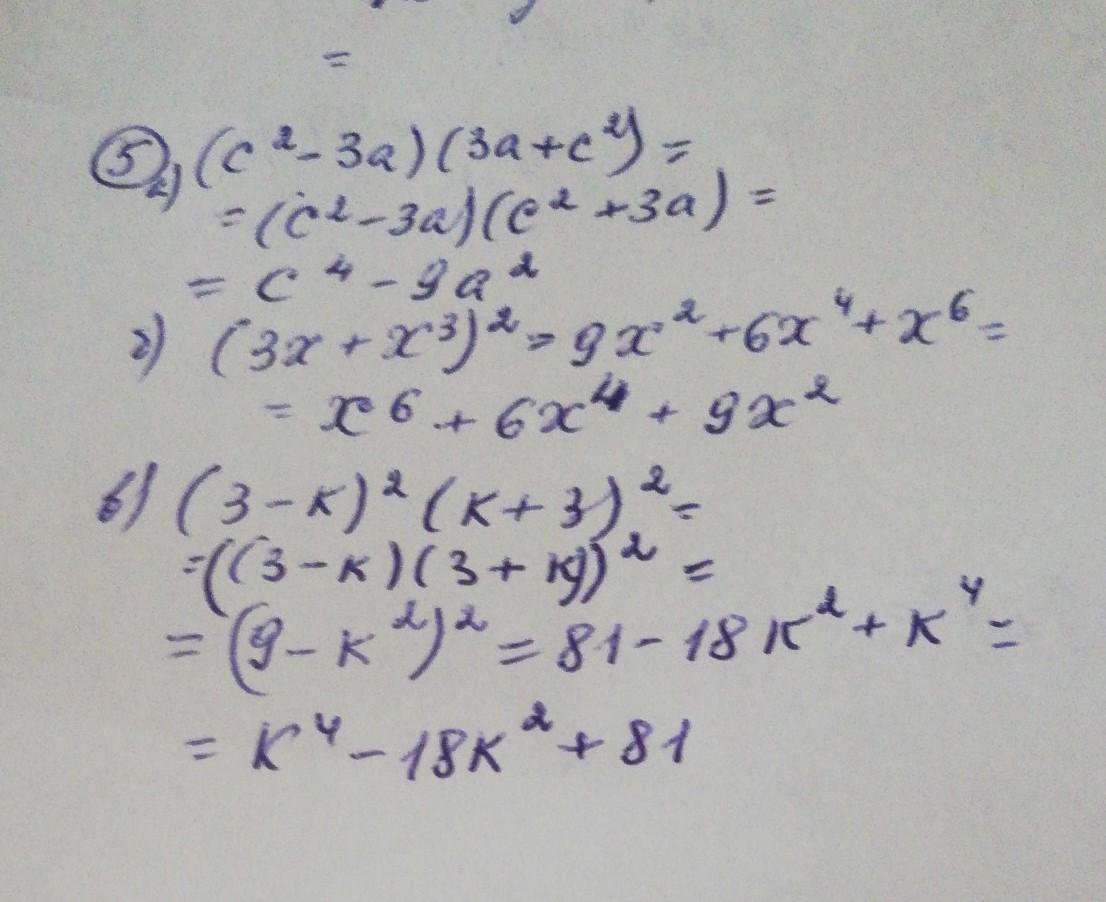 =
5 а) (c² - 3a)(3a + c²) =
= (c² - 3a)(c² + 3a) =
= c⁴ - 9a²
б) (3x + x³)² = 9x² + 6x⁴ + x⁶ =
= x⁶ + 6x⁴ + 9x²
в) (3 - к)² (к + 3)² =
= ((3 - к)(3 + к))² =
= (9 - к²)² = 81 - 18к² + к⁴ =
= к⁴ - 18к² + 81